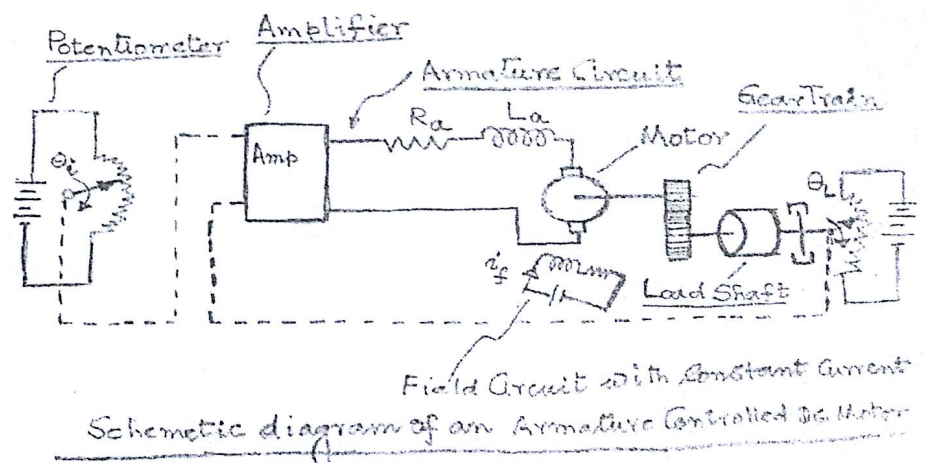 Potentiometer
Amplifier
Armature Circuit
Gear Train
Ra
La
Motor
Amp
θi
θL
if
Load Shaft
Field Circuit with Constant Current
Schemetic diagram of an Armature Controlled DC Motor